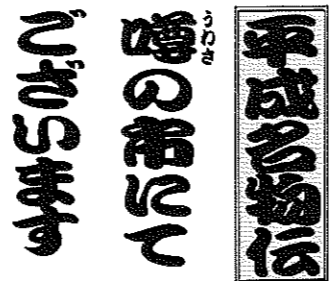 平成名物伝
噂の市にて
ございます